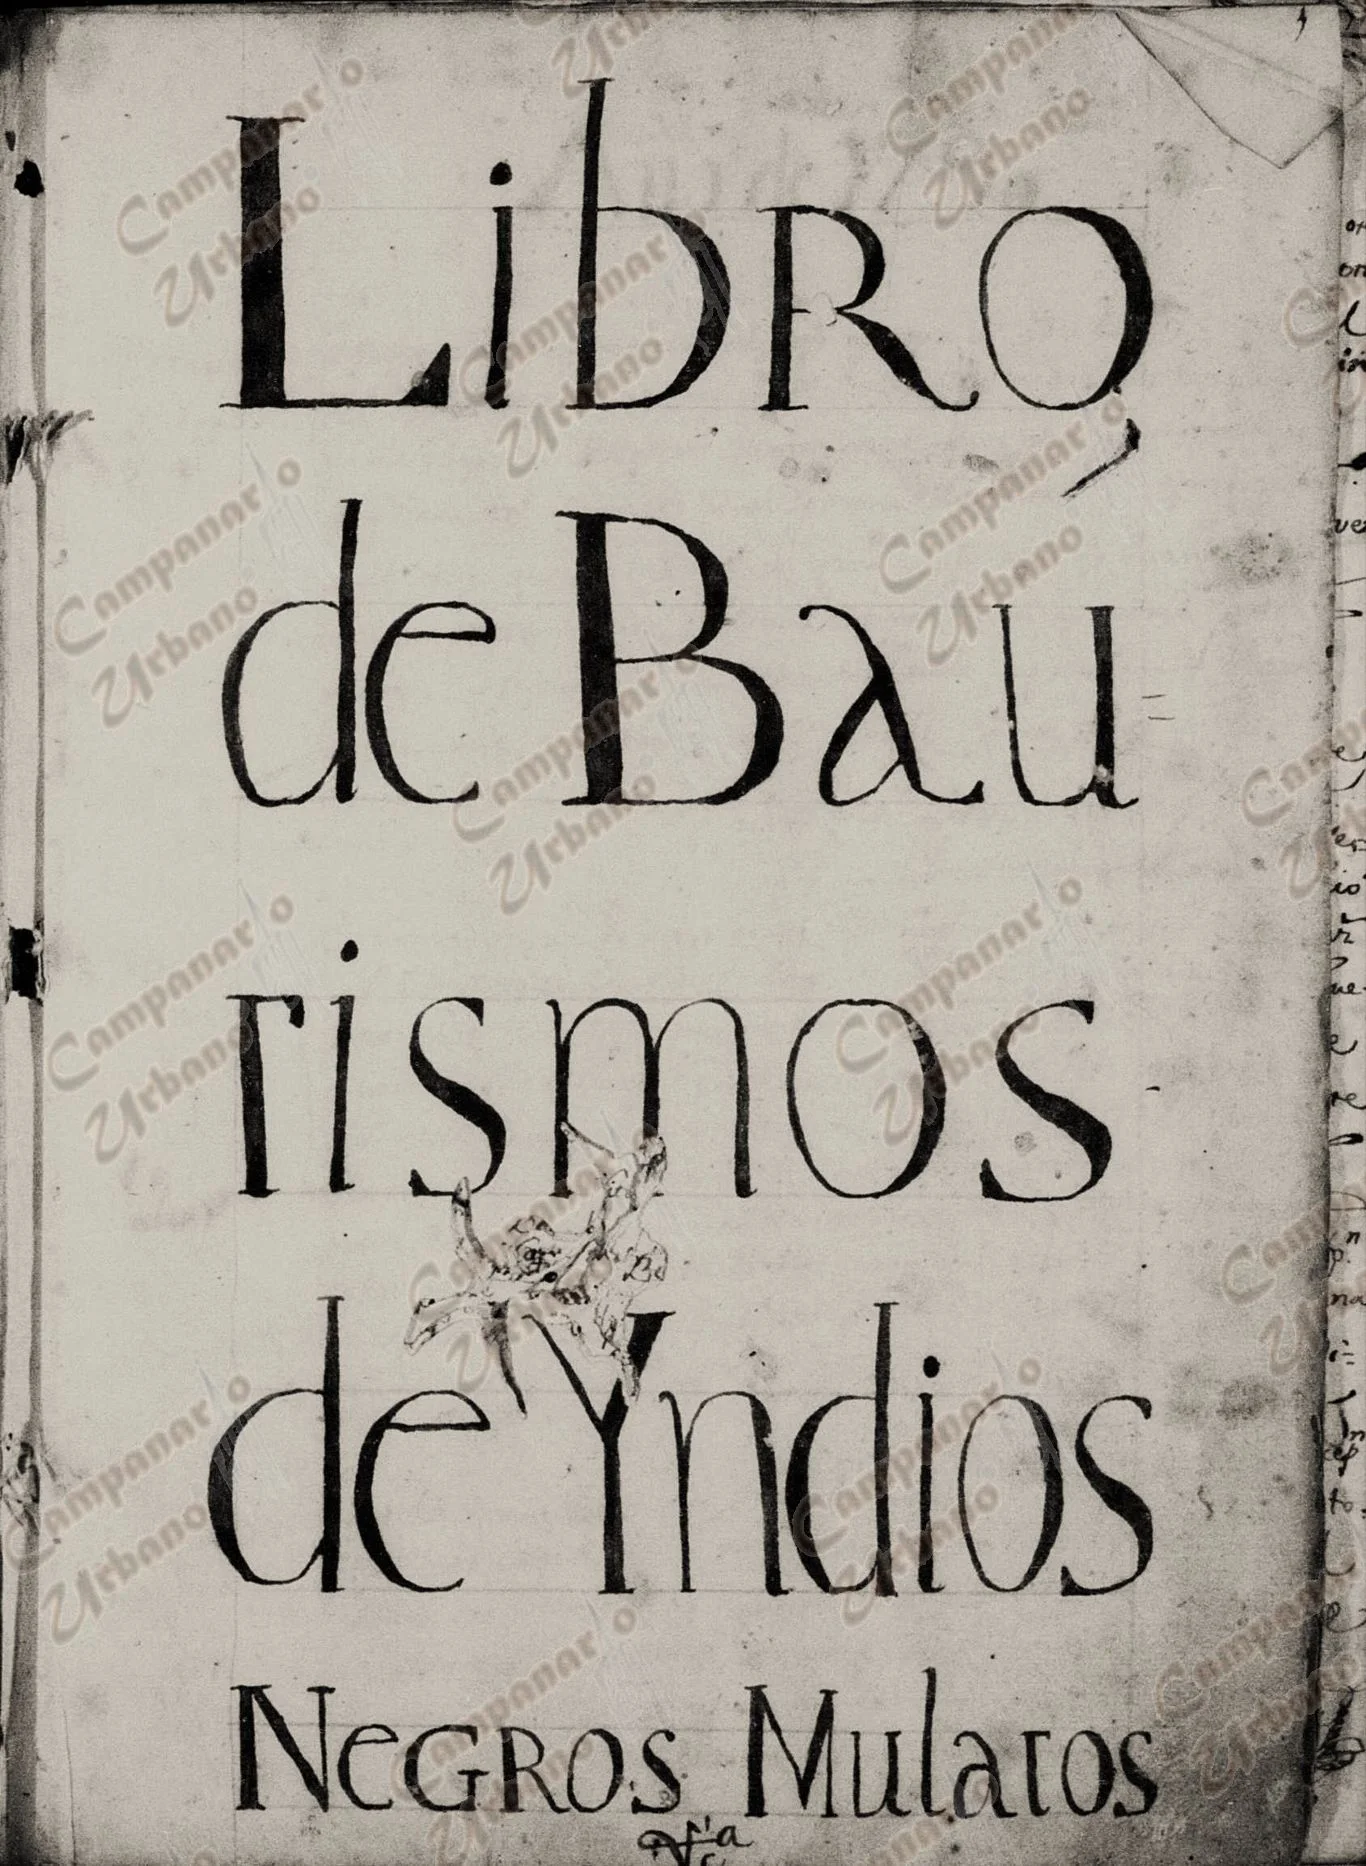 Libro,
de Bau=
tismos
de Yndios
Negros Mulatos
Campanario
Urbano